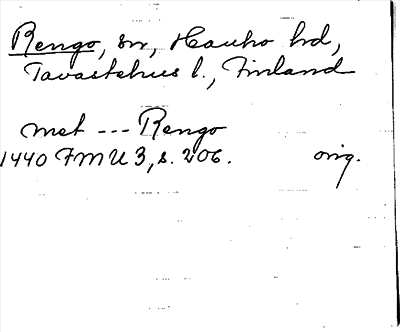 Rengo, sn, Hauho hd,
Tavastehus l., Finland
met --- Rengo
1440 FMU 3, s. 206. orig.